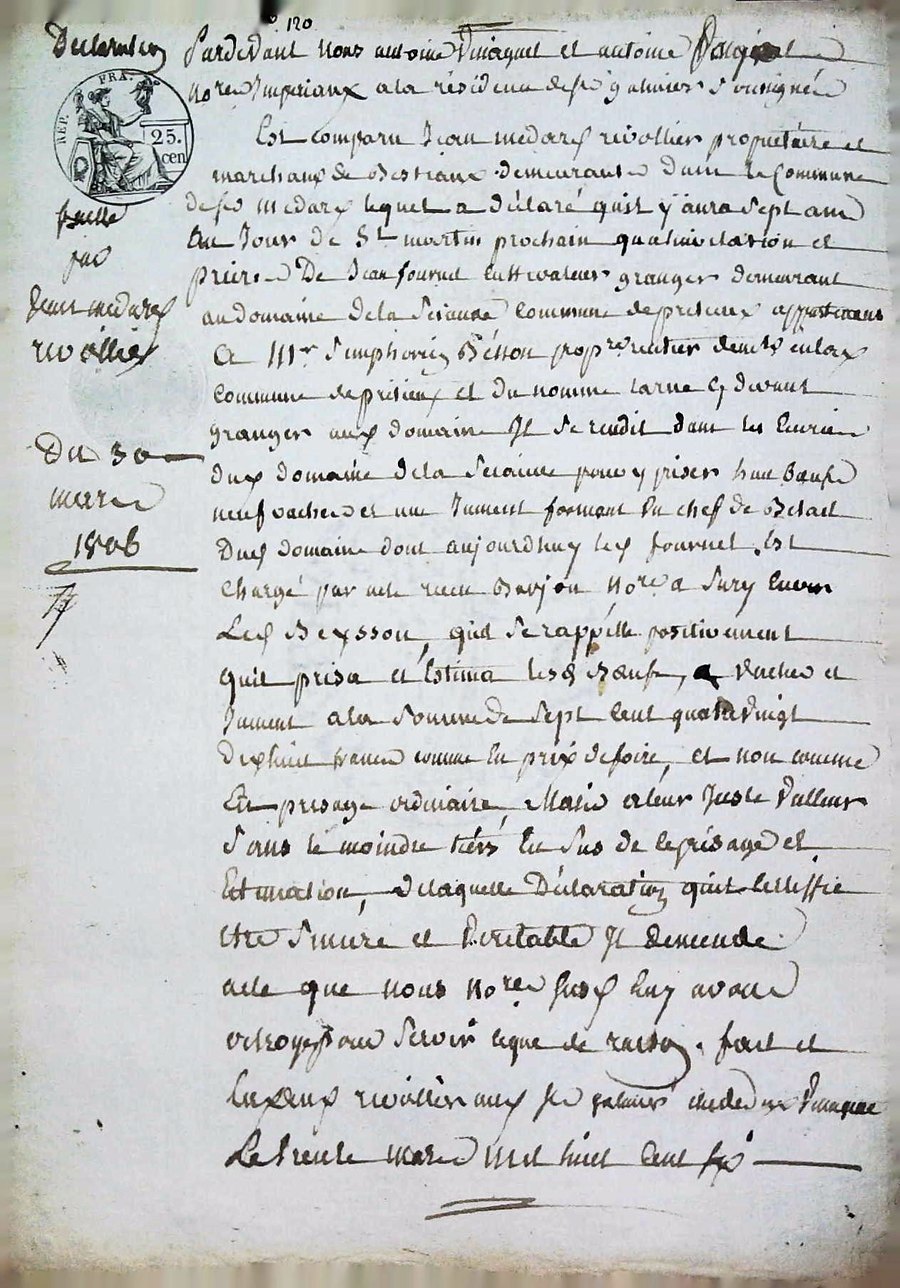 120
Declaration
REP. FRA.
25.
cen
faitte
par
Jean medard
rivollier
Du 30
mars
1806
Pardevant Nous antoine et antoine
Nores Imperiaux a la résidence de st galmier soussignés
Est comparu Jean medard rivollier propriétaire et
marchand de Bestiaux demeurant dans la Commune
de st medard lequel a déclaré qu'il y aura Sept ans
au Jour de St martin prochain qu'a invitation et
priere De Jean fournel cultivateur granger demeurant
au domaine de la Commune de precieux appartenant
a Mr Simphorien Besson propre rentier demt en lad
commune de précieux et du nommé cy devant
granger aud domaine Il se rendit dans les Ecuries
dud domaine de la pour y priser huit Bœufs
neuf vaches et une Jument formant un chef de Betail
Dud domaine dont aujourdhuy led fournel Est
chargé par acte recu Barjon Nore a Sury Envers
Led Beysson, qu'il se rappelle positivement
qu'il prisa et Estima lesd Bœufs, vaches et
Jument a la Somme de Sept Cent quatrevingt
dixhuit francs comme En prix de foire, et non comme
En prisage ordinaire, Mais a leur Juste Valleur
Sans le moindre tiers En Sus de le prisage et
Estimation, de laquelle Déclaration qu'il Certiffie
Etre Sincere et Veritable Il demande
acte que nous Nores Susd luy avons
octroyé pour Servir que de raison. fait et
aud rivollier aud St galmier
Le trente mars mil huit Cent six